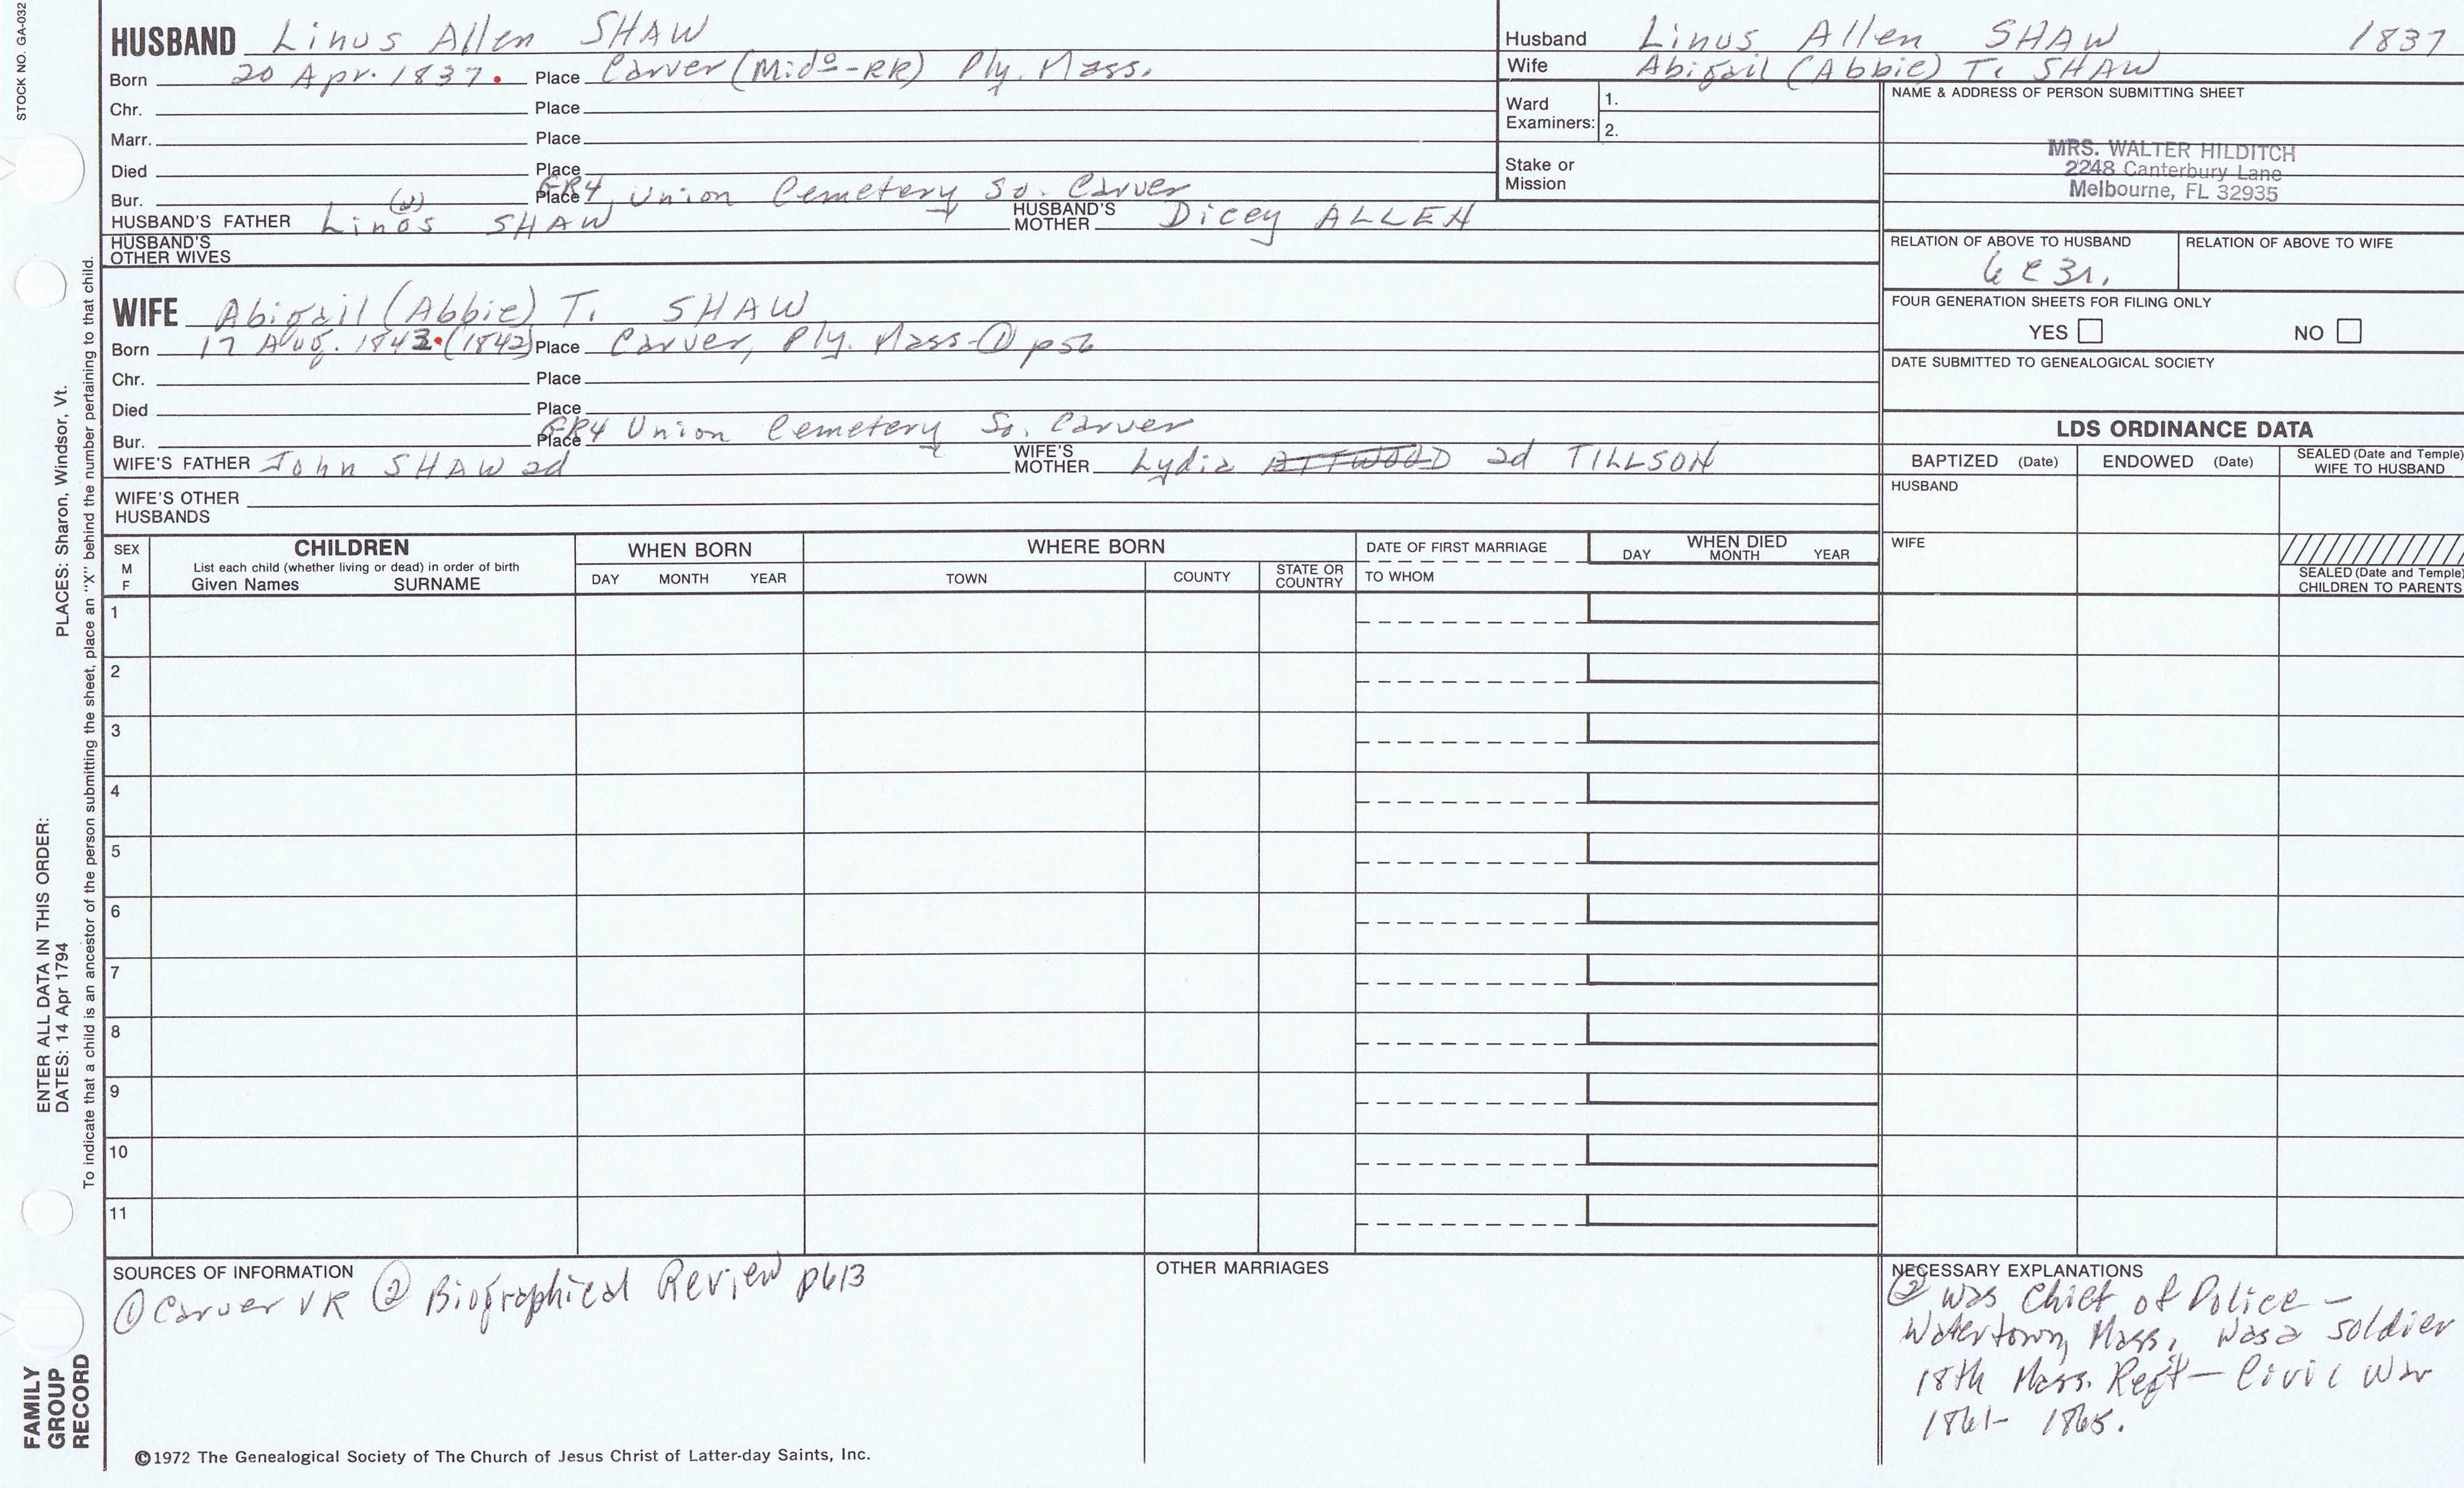 STOCK NO. GA-032
HUSBAND Linus Allen SHAW
Born 20 Apr. 1837. Place Carver (Mido-RR) Ply. Mass.
Chr. Place
Marr. Place
Died Place
Bur. Place GR4, Union Cemetery So. Carver
HUSBAND'S FATHER Linos (u) SHAW HUSBAND'S MOTHER Dicey ALLEN
HUSBAND'S OTHER WIVES
WIFE Abigail (Abbie) T. SHAW
Born 17 Aug. 1843. (1842) Place Carver, Ply. Mass - ① p56
Chr. Place
Died Place
Bur. Place GR4 Union Cemetery So. Carver
WIFE'S FATHER John SHAW 2d WIFE'S MOTHER Lydia ATTWOOD 2d TILLSON
WIFE'S OTHER HUSBANDS
Husband Linus Allen SHAW 1837
Wife Abigail (Abbie) T. SHAW
Ward Examiners: 1.
2.
Stake or Mission
NAME & ADDRESS OF PERSON SUBMITTING SHEET
MRS. WALTER HILDITCH
2248 Canterbury Lane
Melbourne, FL 32935
RELATION OF ABOVE TO HUSBAND RELATION OF ABOVE TO WIFE
6 C 3r.
FOUR GENERATION SHEETS FOR FILING ONLY
YES NO
DATE SUBMITTED TO GENEALOGICAL SOCIETY
LDS ORDINANCE DATA
BAPTIZED (Date) ENDOWED (Date) SEALED (Date and Temple) WIFE TO HUSBAND
HUSBAND
WIFE
SEALED (Date and Temple) CHILDREN TO PARENTS
SEX M F CHILDREN WHEN BORN WHERE BORN DATE OF FIRST MARRIAGE WHEN DIED
List each child (whether living or dead) in order of birth
Given Names SURNAME DAY MONTH YEAR TOWN COUNTY STATE OR COUNTRY TO WHOM DAY MONTH YEAR
1
2
3
4
5
6
7
8
9
10
11
SOURCES OF INFORMATION
① Carver VR ② Biographical Review p613
OTHER MARRIAGES
NECESSARY EXPLANATIONS
② was Chief of Police -
Watertown, Mass, was a soldier
18th Mass. Regt - Civil War
1861- 1865.
©1972 The Genealogical Society of The Church of Jesus Christ of Latter-day Saints, Inc.
FAMILY
GROUP
RECORD
ENTER ALL DATA IN THIS ORDER:
DATES: 14 Apr 1794 PLACES: Sharon, Windsor, Vt.
To indicate that a child is an ancestor of the person submitting the sheet, place an "X" behind the number pertaining to that child.